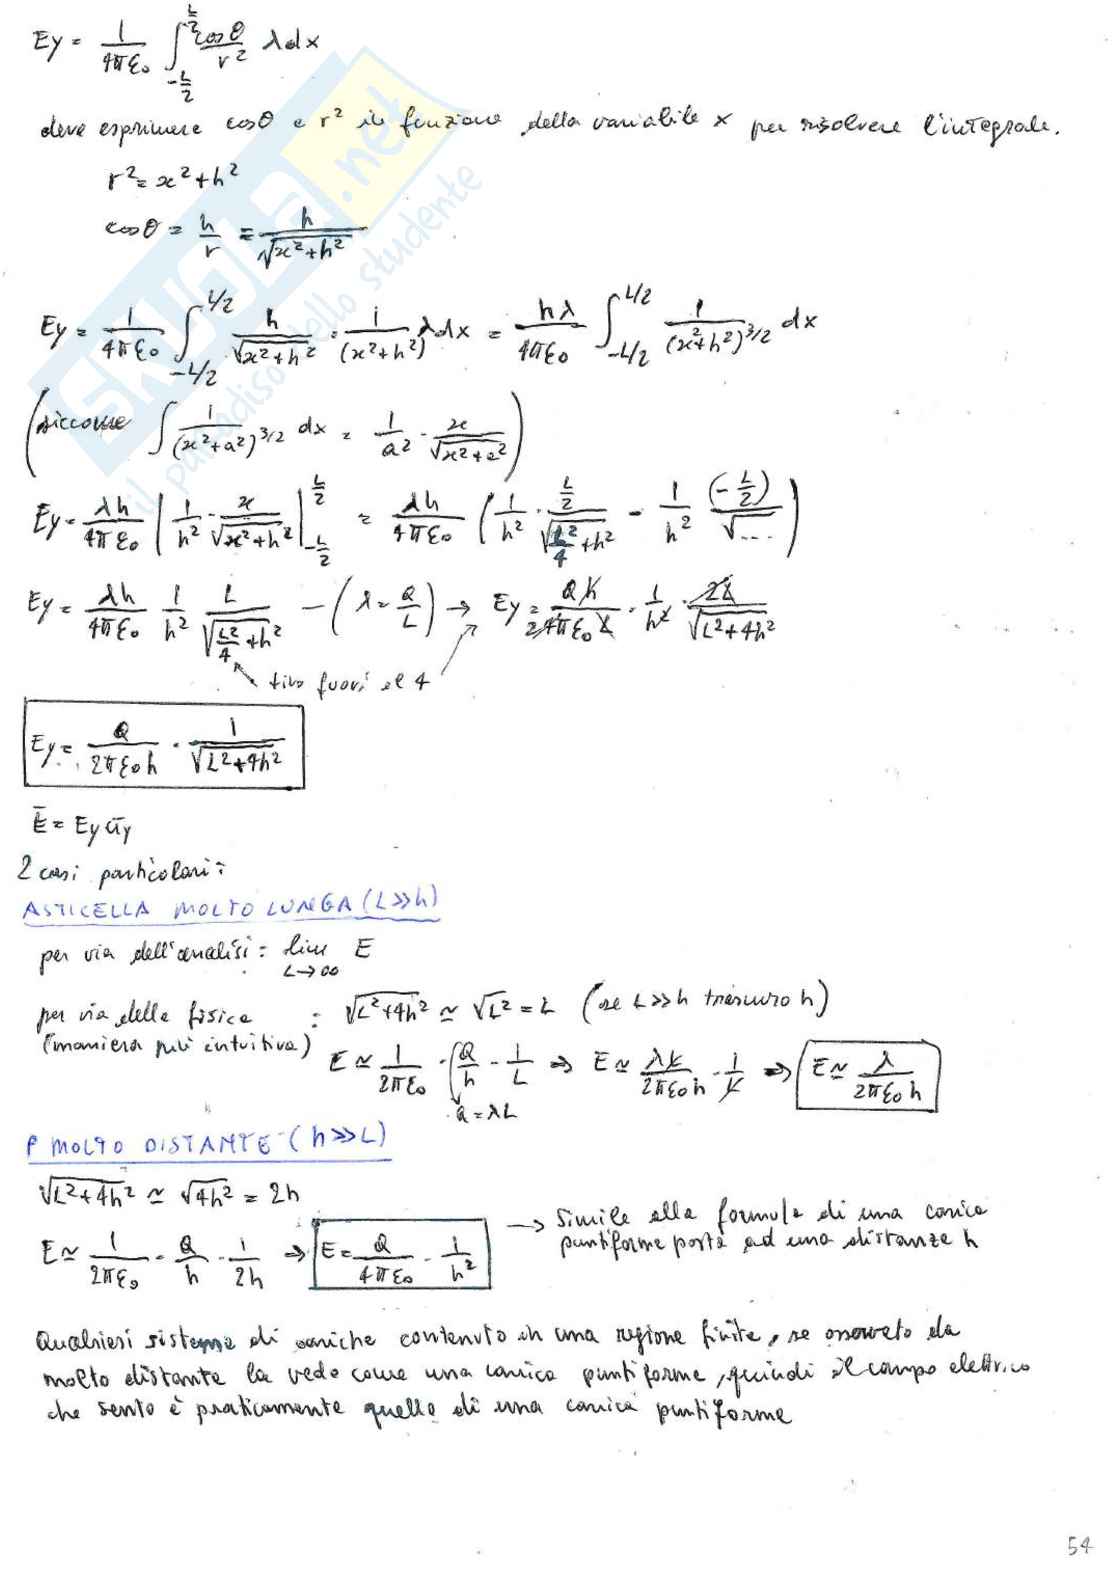 Ey = 1/4πε₀ ∫_{-L/2}^{L/2} cosθ/r² λdx
deve esprimere cosθ e r² in funzione della variabile x per risolvere l'integrale.
r² = x² + h²
cosθ = h/r = h/√(x²+h²)
Ey = 1/4πε₀ ∫_{-L/2}^{L/2} h/√(x²+h²) · 1/(x²+h²) λdx = hλ/4πε₀ ∫_{-L/2}^{L/2} 1/(x²+h²)^{3/2} dx
(siccome ∫ 1/(x²+a²)^{3/2} dx = 1/a² · x/√(x²+a²))
Ey = λh/4πε₀ | 1/h² · x/√(x²+h²) |_{-L/2}^{L/2} = λh/4πε₀ (1/h² · L/2/√(L²/4+h²) - 1/h² (-L/2)/√....)
Ey = λh/4πε₀ 1/h² L/√(L²/4+h²) - (λ = Q/L) → Ey = Qh/2 4πε₀L · 1/h² · 2L/√(L²+4h²)
tiro fuori il 4
Ey = Q/2πε₀h · 1/√(L²+4h²)
E̅ = Ey u̅y
2 casi particolari:
ASTICELLA MOLTO LUNGA (L≫h)
per via dell'analisi: lim_{L→∞} E
per via della fisica : √(L²+4h²) ≃ √L² = L (se L≫h trascuro h)
(maniera più intuitiva) E ≃ 1/2πε₀ · Q/h · 1/L ⇒ E ≃ λL/2πε₀h · 1/L ⇒ E ≃ λ/2πε₀h
Q = λL
P MOLTO DISTANTE (h≫L)
√(L²+4h²) ≃ √4h² = 2h
E ≃ 1/2πε₀ · Q/h · 1/2h ⇒ E = Q/4πε₀ · 1/h² → Simile alla formula di una carica
puntiforme posta ad una distanza h
Qualsiasi sistema di cariche contenuto in una regione finita, se osservato da
molto distante la vedo come una carica puntiforme, quindi il campo elettrico
che sento è praticamente quello di una carica puntiforme
54
SKUOLA.net
il paradiso dello studente